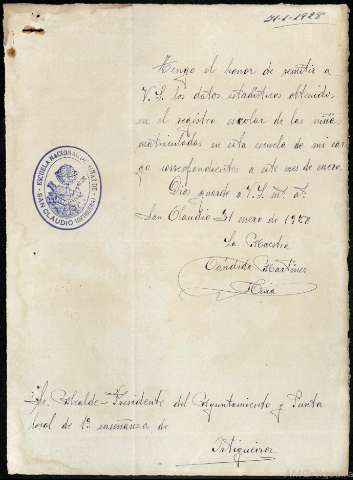 31-1-1928
Tengo el honor de remitir a
V.S. los datos estadísticos obtenidos
en el registro escolar de las niñas
matriculadas en esta escuela de mi car
go correspondientes a este mes de enero.
Dios guarde a V.S. m. a.
San Claudio 31 enero de 1928
La Maestra
Candida Martinez
ESCUELA NACIONAL DE NIÑAS DE
SAN CLAUDIO
Sr. Alcalde-Presidente del Ayuntamiento y Junta
local de 1ª enseñanza de
Ortigueira